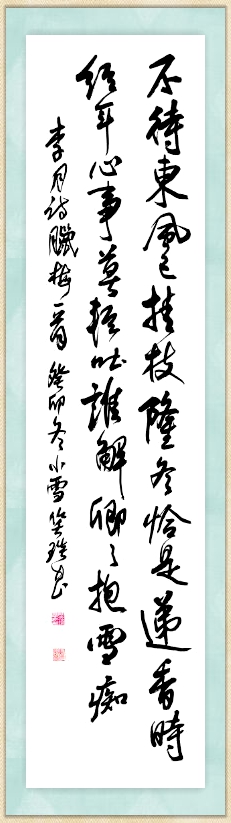 不待東風已掛枝隆冬恰是遞香時
經年心事莫輕吐誰解卿卿抱雪痴
李月詩臘梅一首 癸卯冬小雪